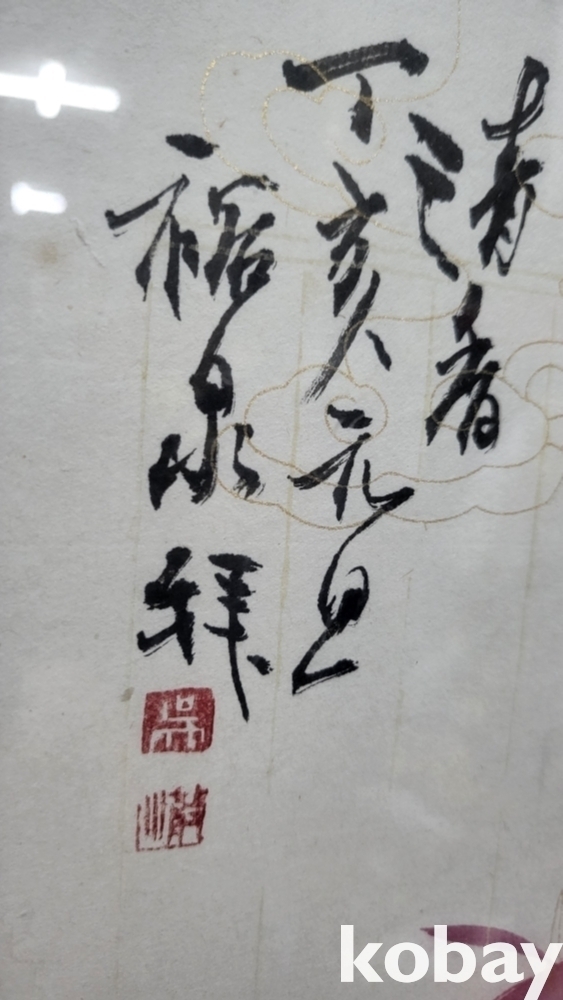 清香
丁亥元旦
裕泉拜
吳
kobay